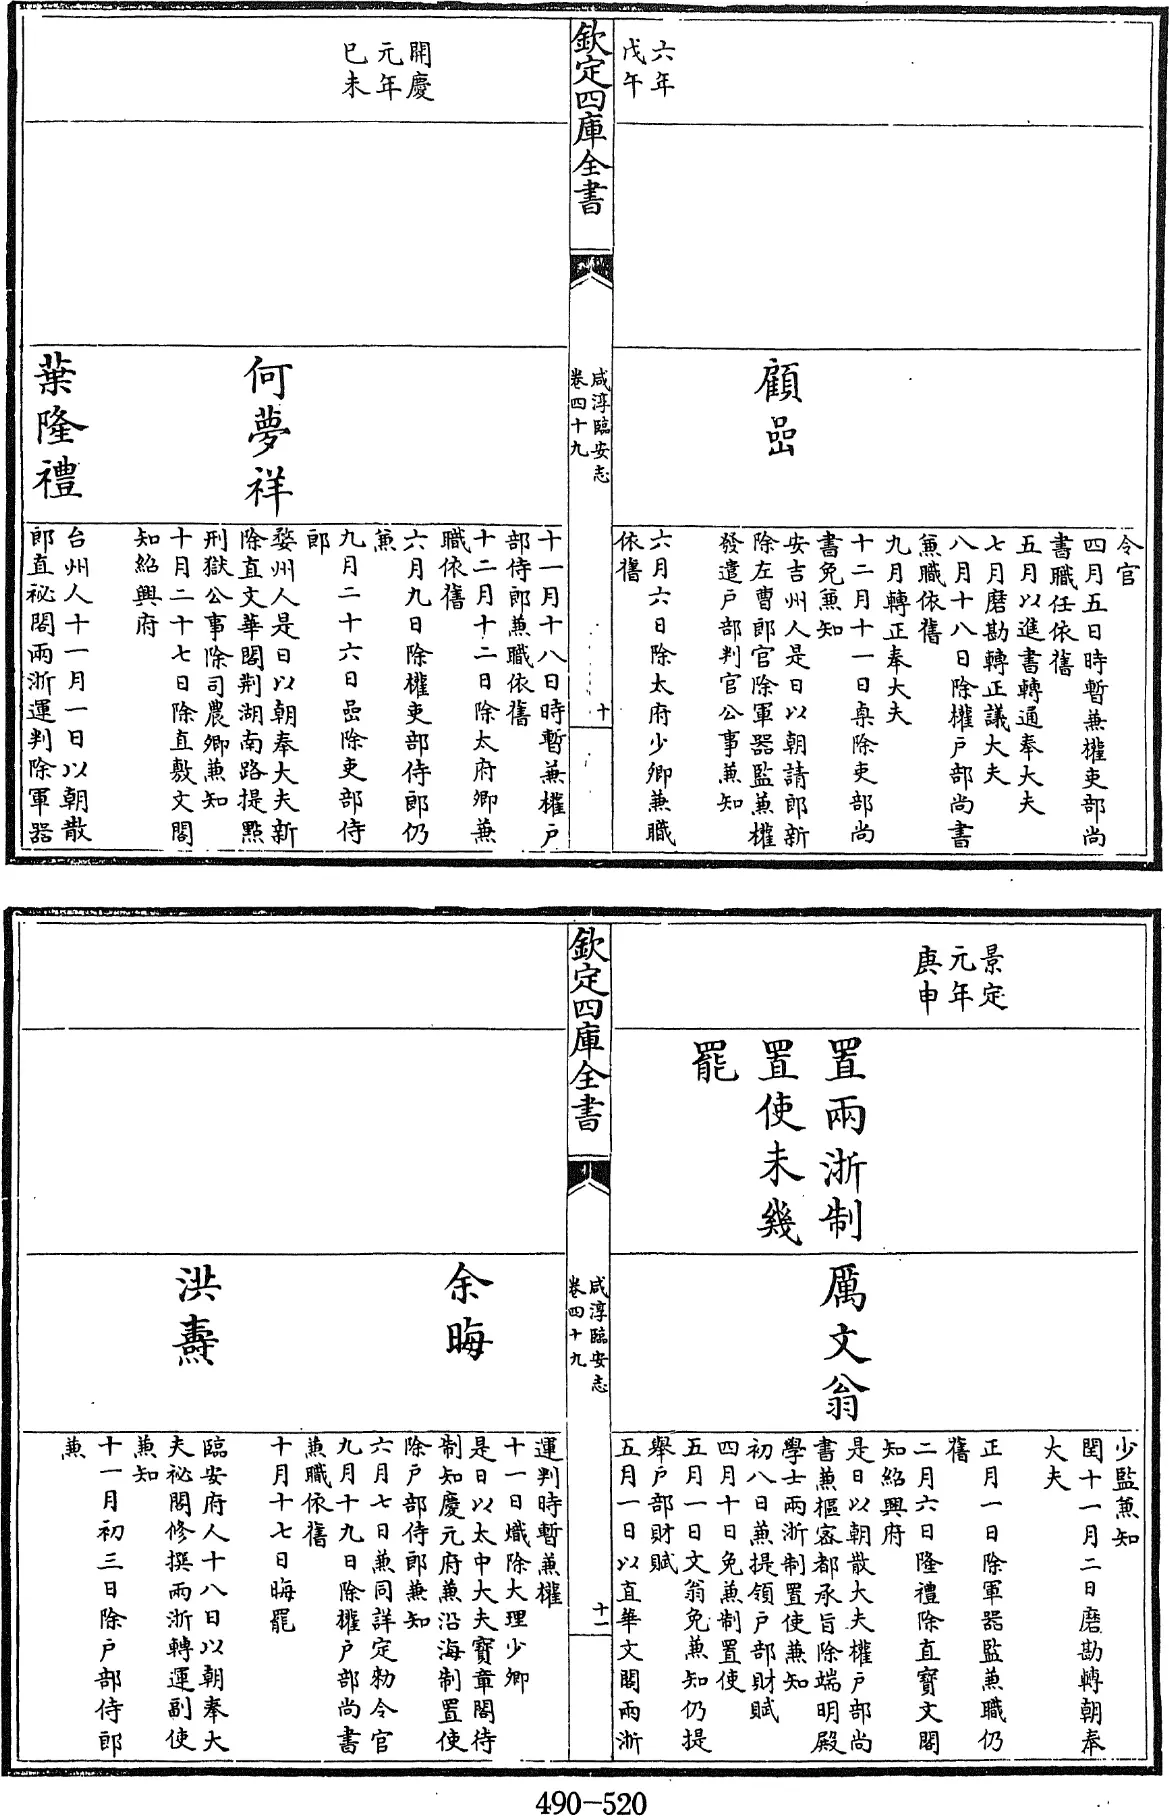 令官
四月五日時暫兼權吏部尚
書職任依舊
五月以進書轉通奉大夫
七月磨勘轉正議大夫
八月十八日除權户部尚書
兼職依舊
九月轉正奉大夫
十二月十一日㮚除吏部尚
書免兼知
顧嵒
安吉州人是日以朝請郎新
除左曹郎官除軍器監兼權
發遣户部判官公事兼知
六年
戊午
六月六日除太府少卿兼職
依舊
欽定四庫全書
咸淳臨安志
卷四十九
十
十一月十八日時暫兼權户
部侍郎兼職依舊
十二月十二日除太府卿兼
職依舊
開慶
元年
已未
六月九日除權吏部侍郎仍
兼
九月二十六日嵒除吏部侍
郎
何夢祥
婺州人是日以朝奉大夫新
除直文華閣荆湖南路提㸃
刑獄公事除司農卿兼知
十月二十七日除直敷文閣
知紹興府
葉隆禮
台州人十一月一日以朝散
郎直祕閣兩浙運判除軍器
少監兼知
閏十一月二日磨勘轉朝奉
大夫
景定
元年
庚申
正月一日除軍器監兼職仍
舊
二月六日隆禮除直寶文閣
知紹興府
置兩浙制
置使未幾
罷
厲文翁
是日以朝散大夫權户部尚
書兼樞密都承旨除端明殿
學士兩浙制置使兼知
初八日兼提領户部財賦
四月十日免兼制置使
五月一日文翁免兼知仍提
舉户部財賦
五月一日以直華文閣兩浙
欽定四庫全書
咸淳臨安志
卷四十九
十一
運判時暫兼權
十一日熾除大理少卿
余晦
是日以太中大夫寶章閣待
制知慶元府兼沿海制置使
除户部侍郎兼知
六月七日兼同詳定勑令官
九月十九日除權户部尚書
兼職依舊
十月十七日晦罷
洪燾
臨安府人十八日以朝奉大
夫祕閣修撰兩浙轉運副使
兼知
十一月初三日除户部侍郎
兼
490-520